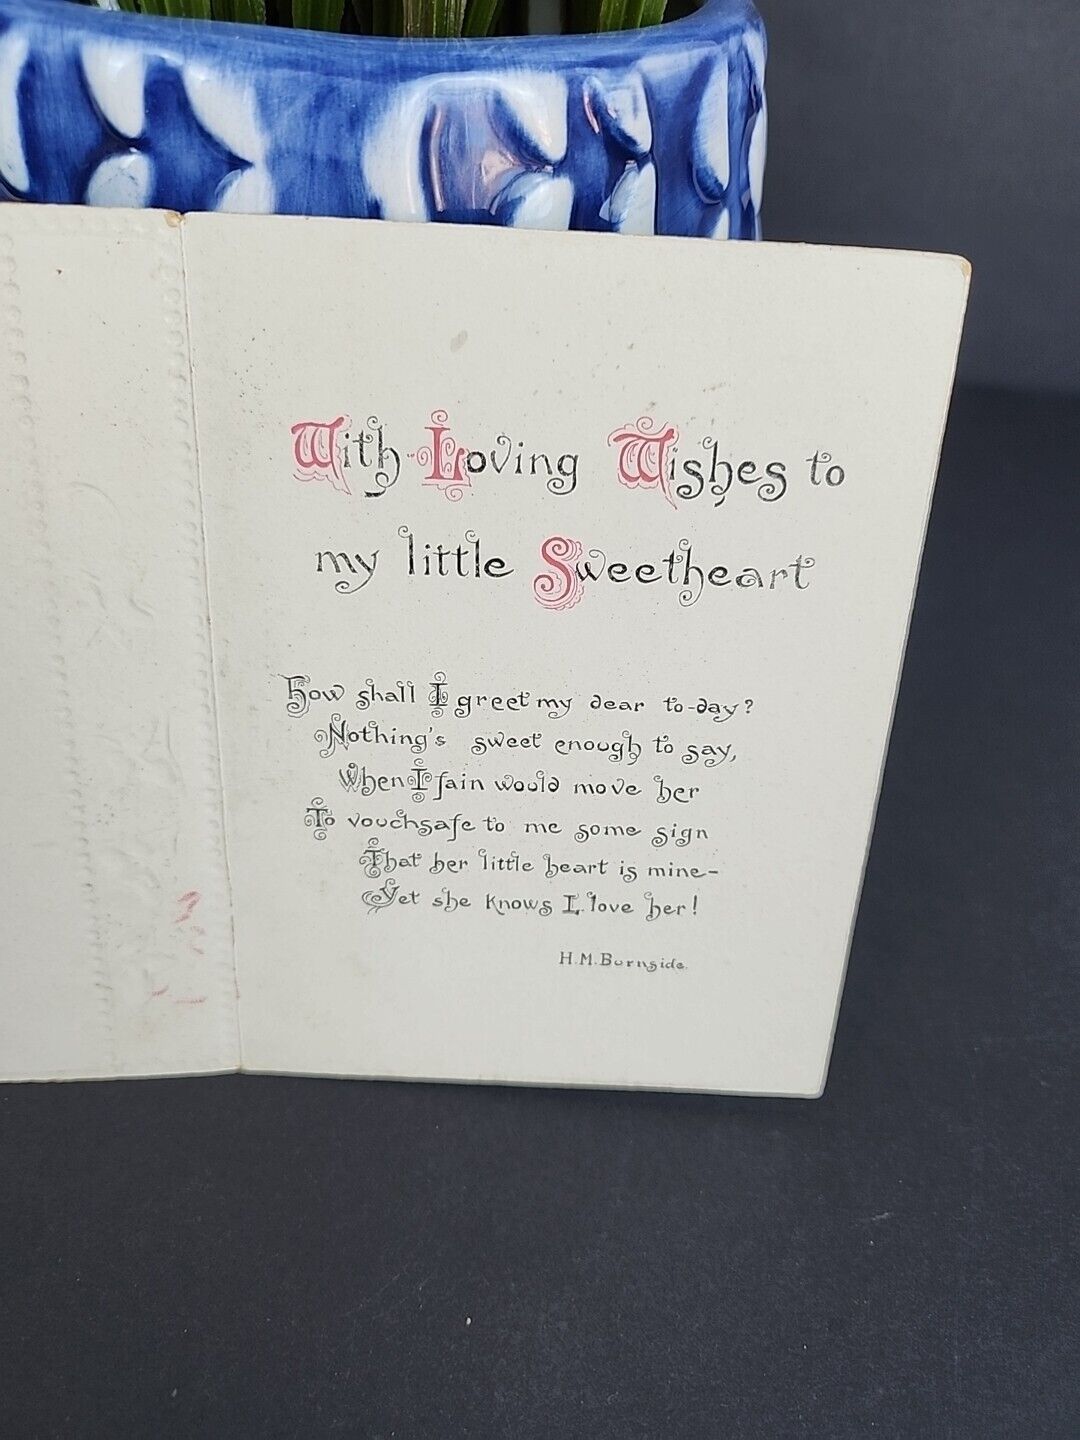 With Loving Wishes to
my little Sweetheart
How shall I greet my dear to-day?
Nothing's sweet enough to say,
When I fain would move her
To vouchsafe to me some sign
That her little heart is mine-
Yet she knows I love her!
H.M.Burnside.